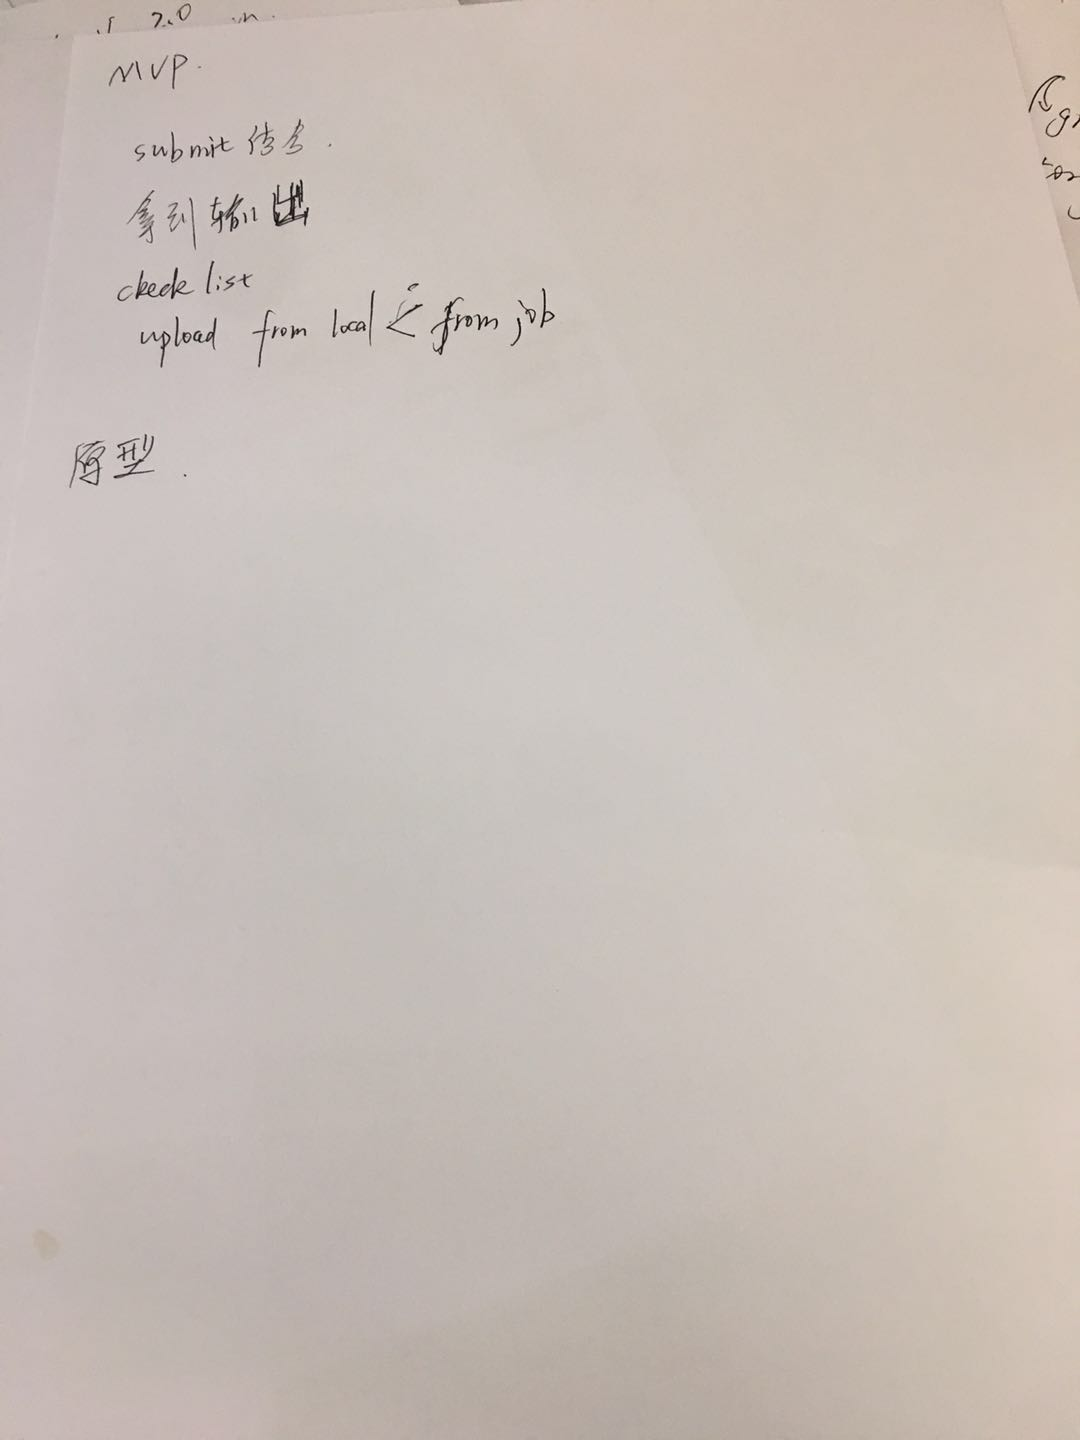 7.0
MVP.
submit 传参.
拿到输出
check list
upload from local < from job
原型.